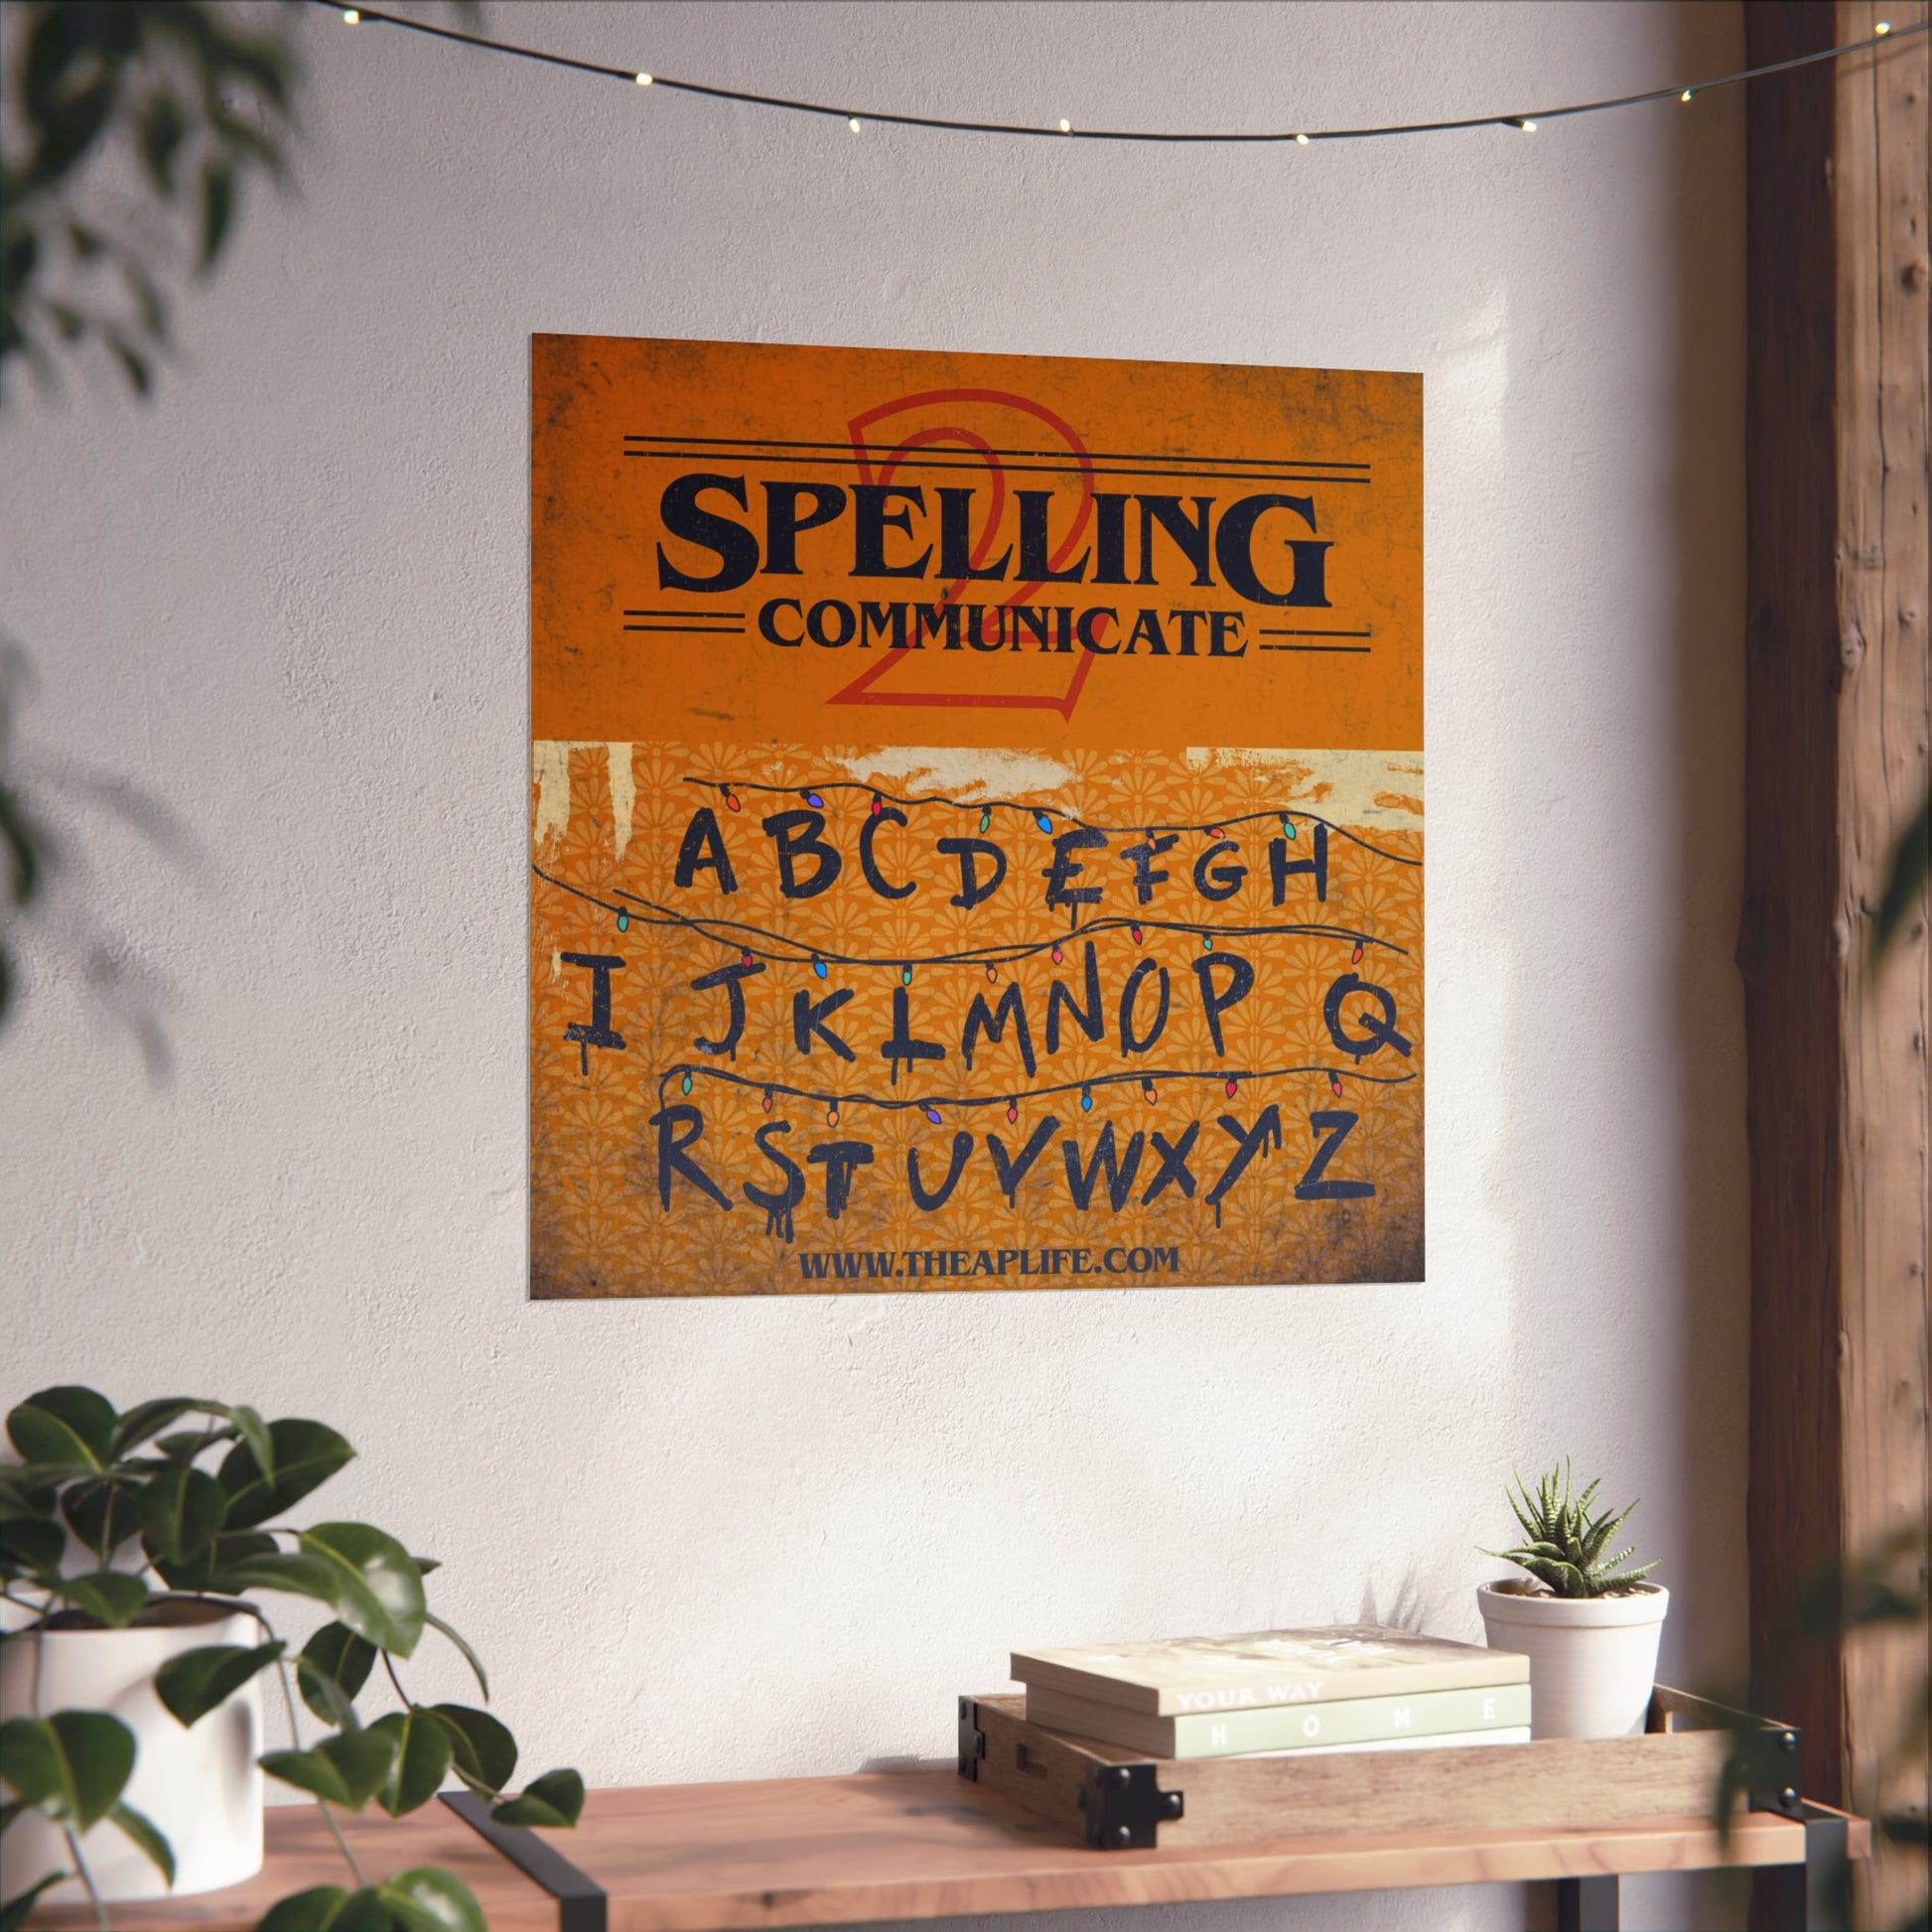 2
SPELLING
COMMUNICATE
A B C D E F G H
I J K L M N O P Q
R S T U V W X Y Z
WWW.THEAPLIFE.COM
YOUR WAY
HOME